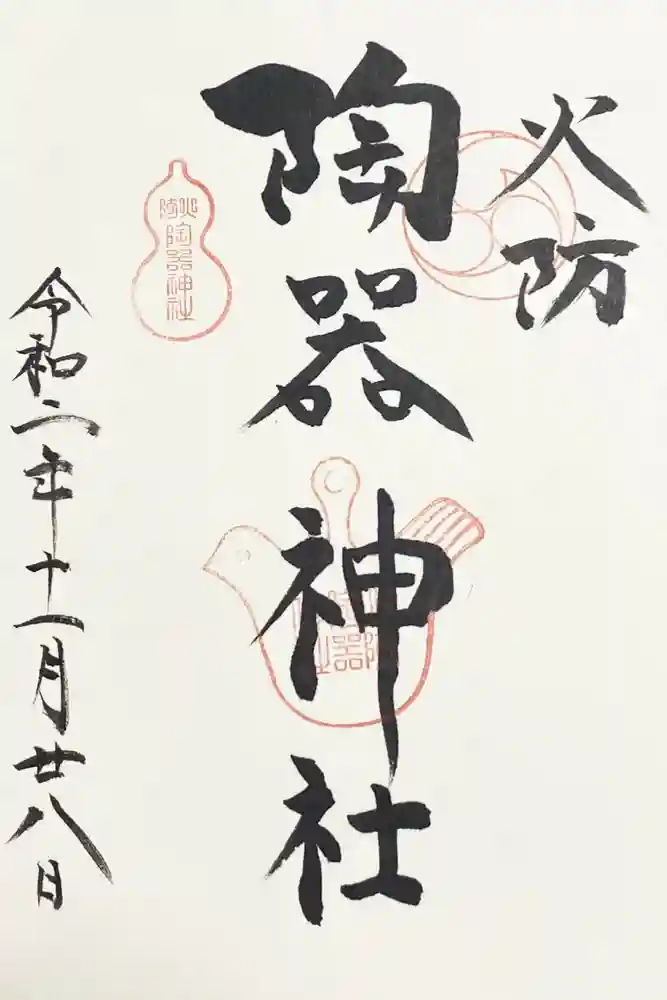 火防
陶器神社
火防
陶器神社
令和二年十一月廿八日